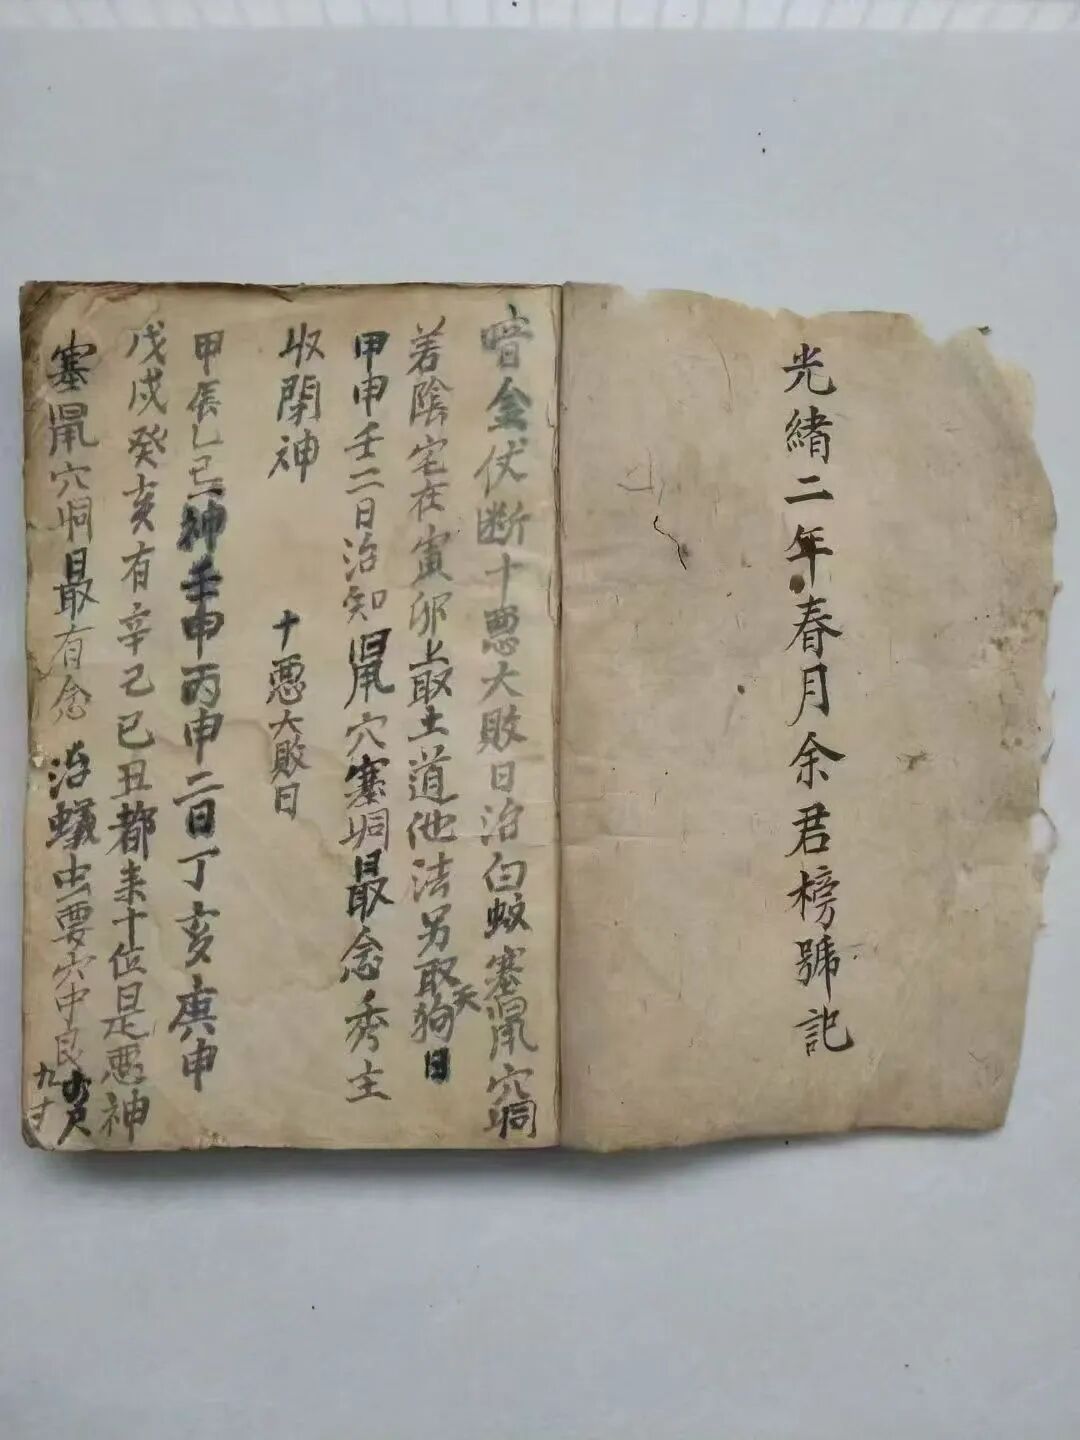 光緒二年春月余君榜號記
暗金伏断十悪大敗日治白蚁塞鼠穴垌
若陰宅在寅卯上取土道他法另取天狗日
甲申壬二日治知鼠穴塞垌最念秀主
收閉神
十悪大敗日
甲辰乙巳神壬申丙申二日丁亥庚申
戊戌癸亥有辛己巳丑都来十位是悪神
塞鼠穴垌最有念 治蟻虫要穴中良
九寸